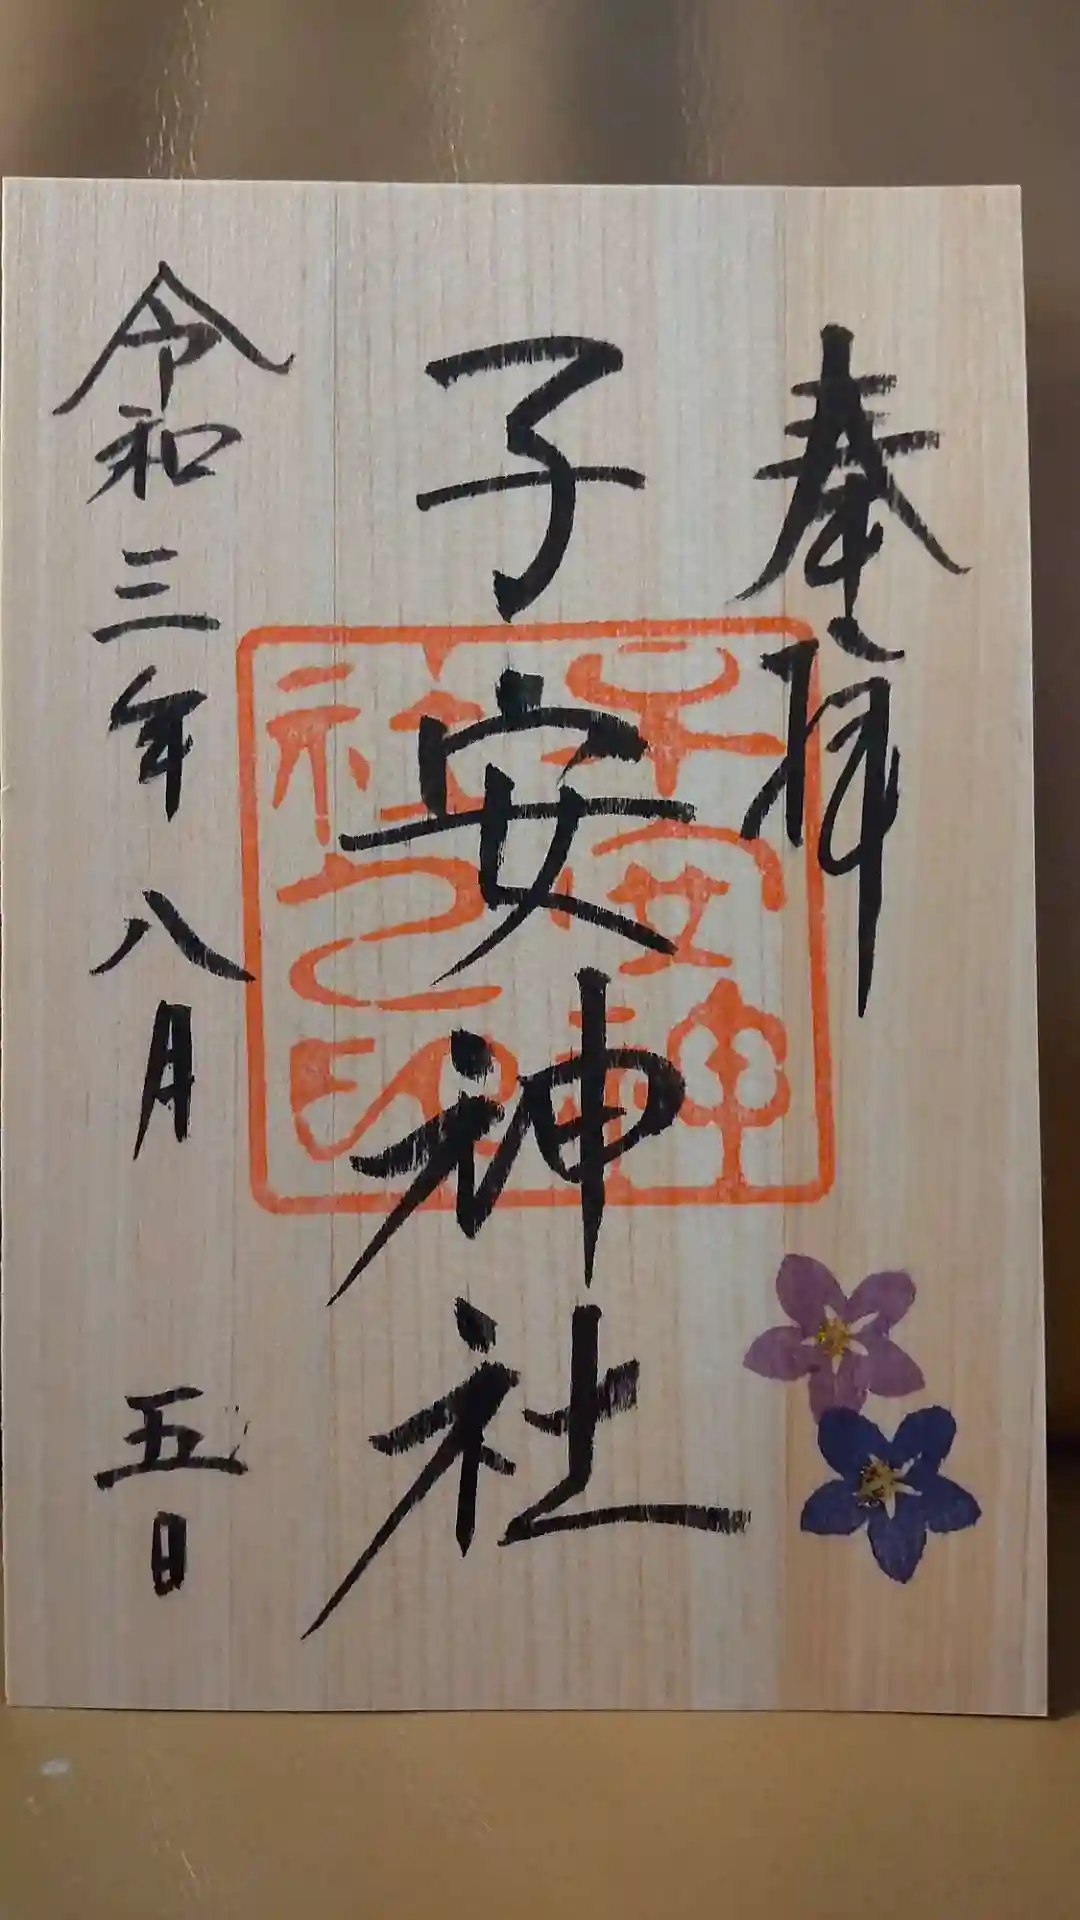 奉拝
子安神社
子安神社之印
令和三年八月五日